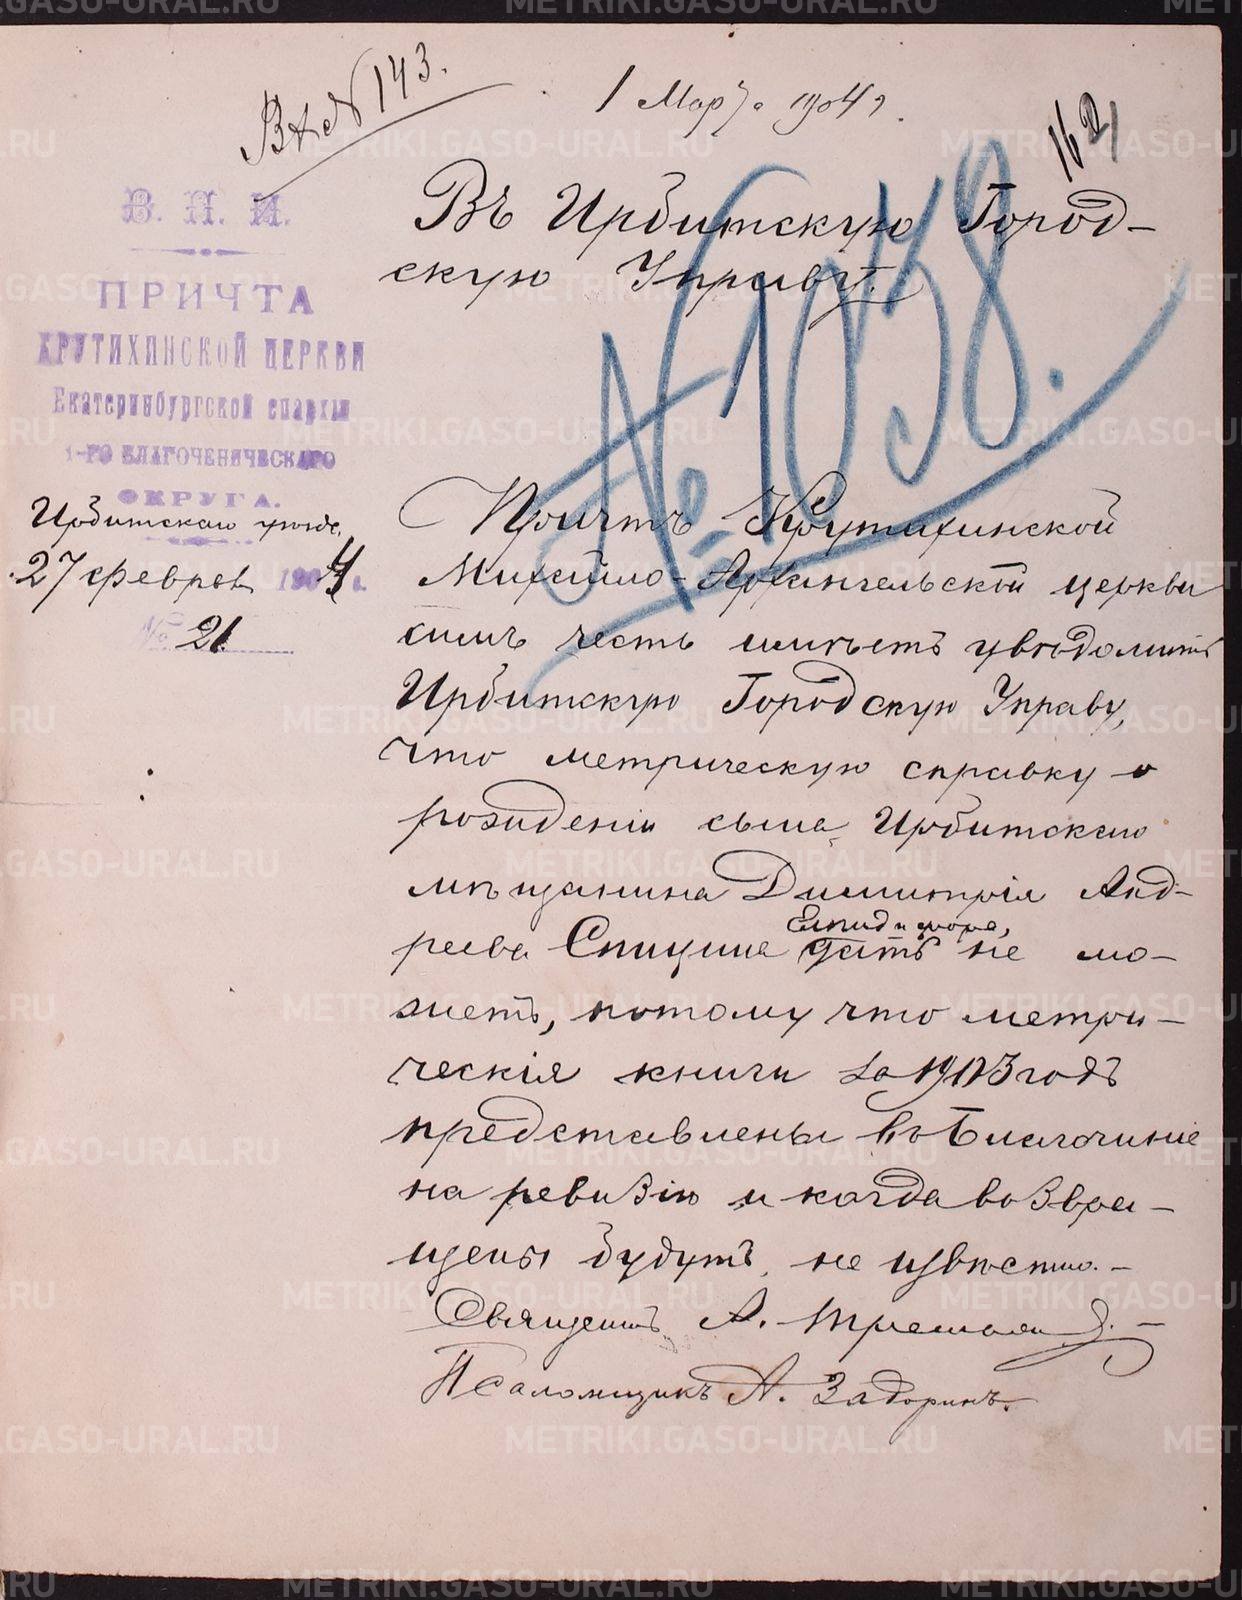 Вх № 143.
1 Марта 1904 г.
162
Въ Ирбитскую Город-
скую Управу.
№ 1058.
В. П. И.
ПРИЧТА
КРУТИХИНСКОЙ ЦЕРКВИ
Екатеринбургской епархіи
1-ГО БЛАГОЧИНИЧЕСКАГО
ОКРУГА.
Ирбитскаго уѣзда.
27 феврал 1904 г.
№ 21
Причтъ Крутихинской
Михайло-Архангельской церкви
симъ честь имѣетъ увѣдомить
Ирбитскую Городскую Управу,
что метрическую справку о
рожденіи сына Ирбитскаго
мѣщанина Димитрія Анд-
реева Спицина Елпидифора,
дать не мо-
жетъ, потому что метри-
ческія книги за 1903 годъ
представлены въ Благочиніе
на ревизію и когда возвра-
щены будутъ, не извѣстно.-
Священникъ А.
Псаломщикъ А. Задоринъ.
METRIKI.GASO-URAL.RU